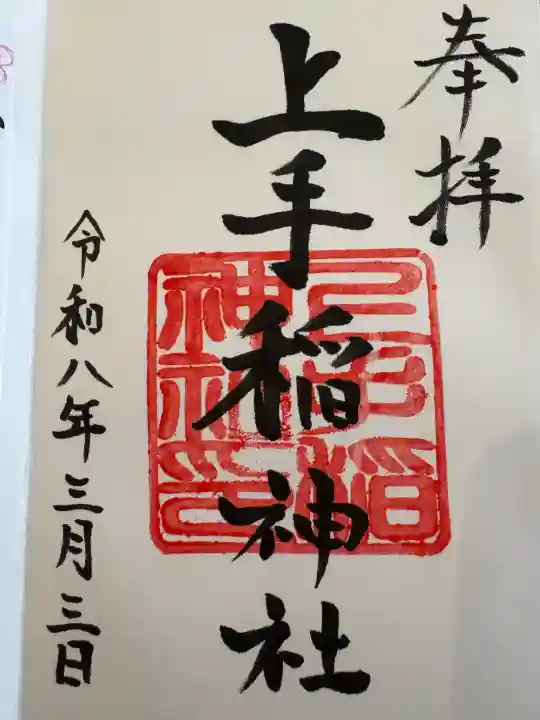 奉拝
上手稲神社
令和八年三月三日